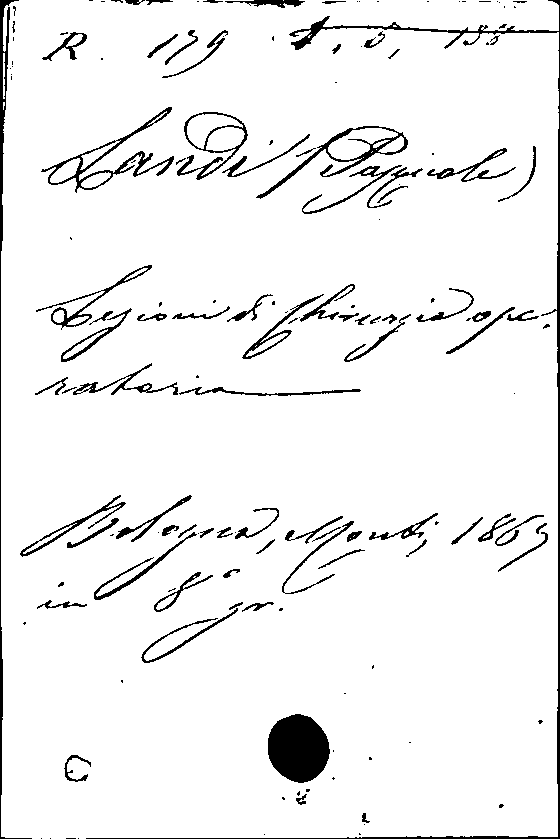 R. 179 1, 5, 138
Landi (Pasquale)
Lezioni di Chirurgia ope-
ratoria
Bologna, Monti, 1865
in 8° gr.
C